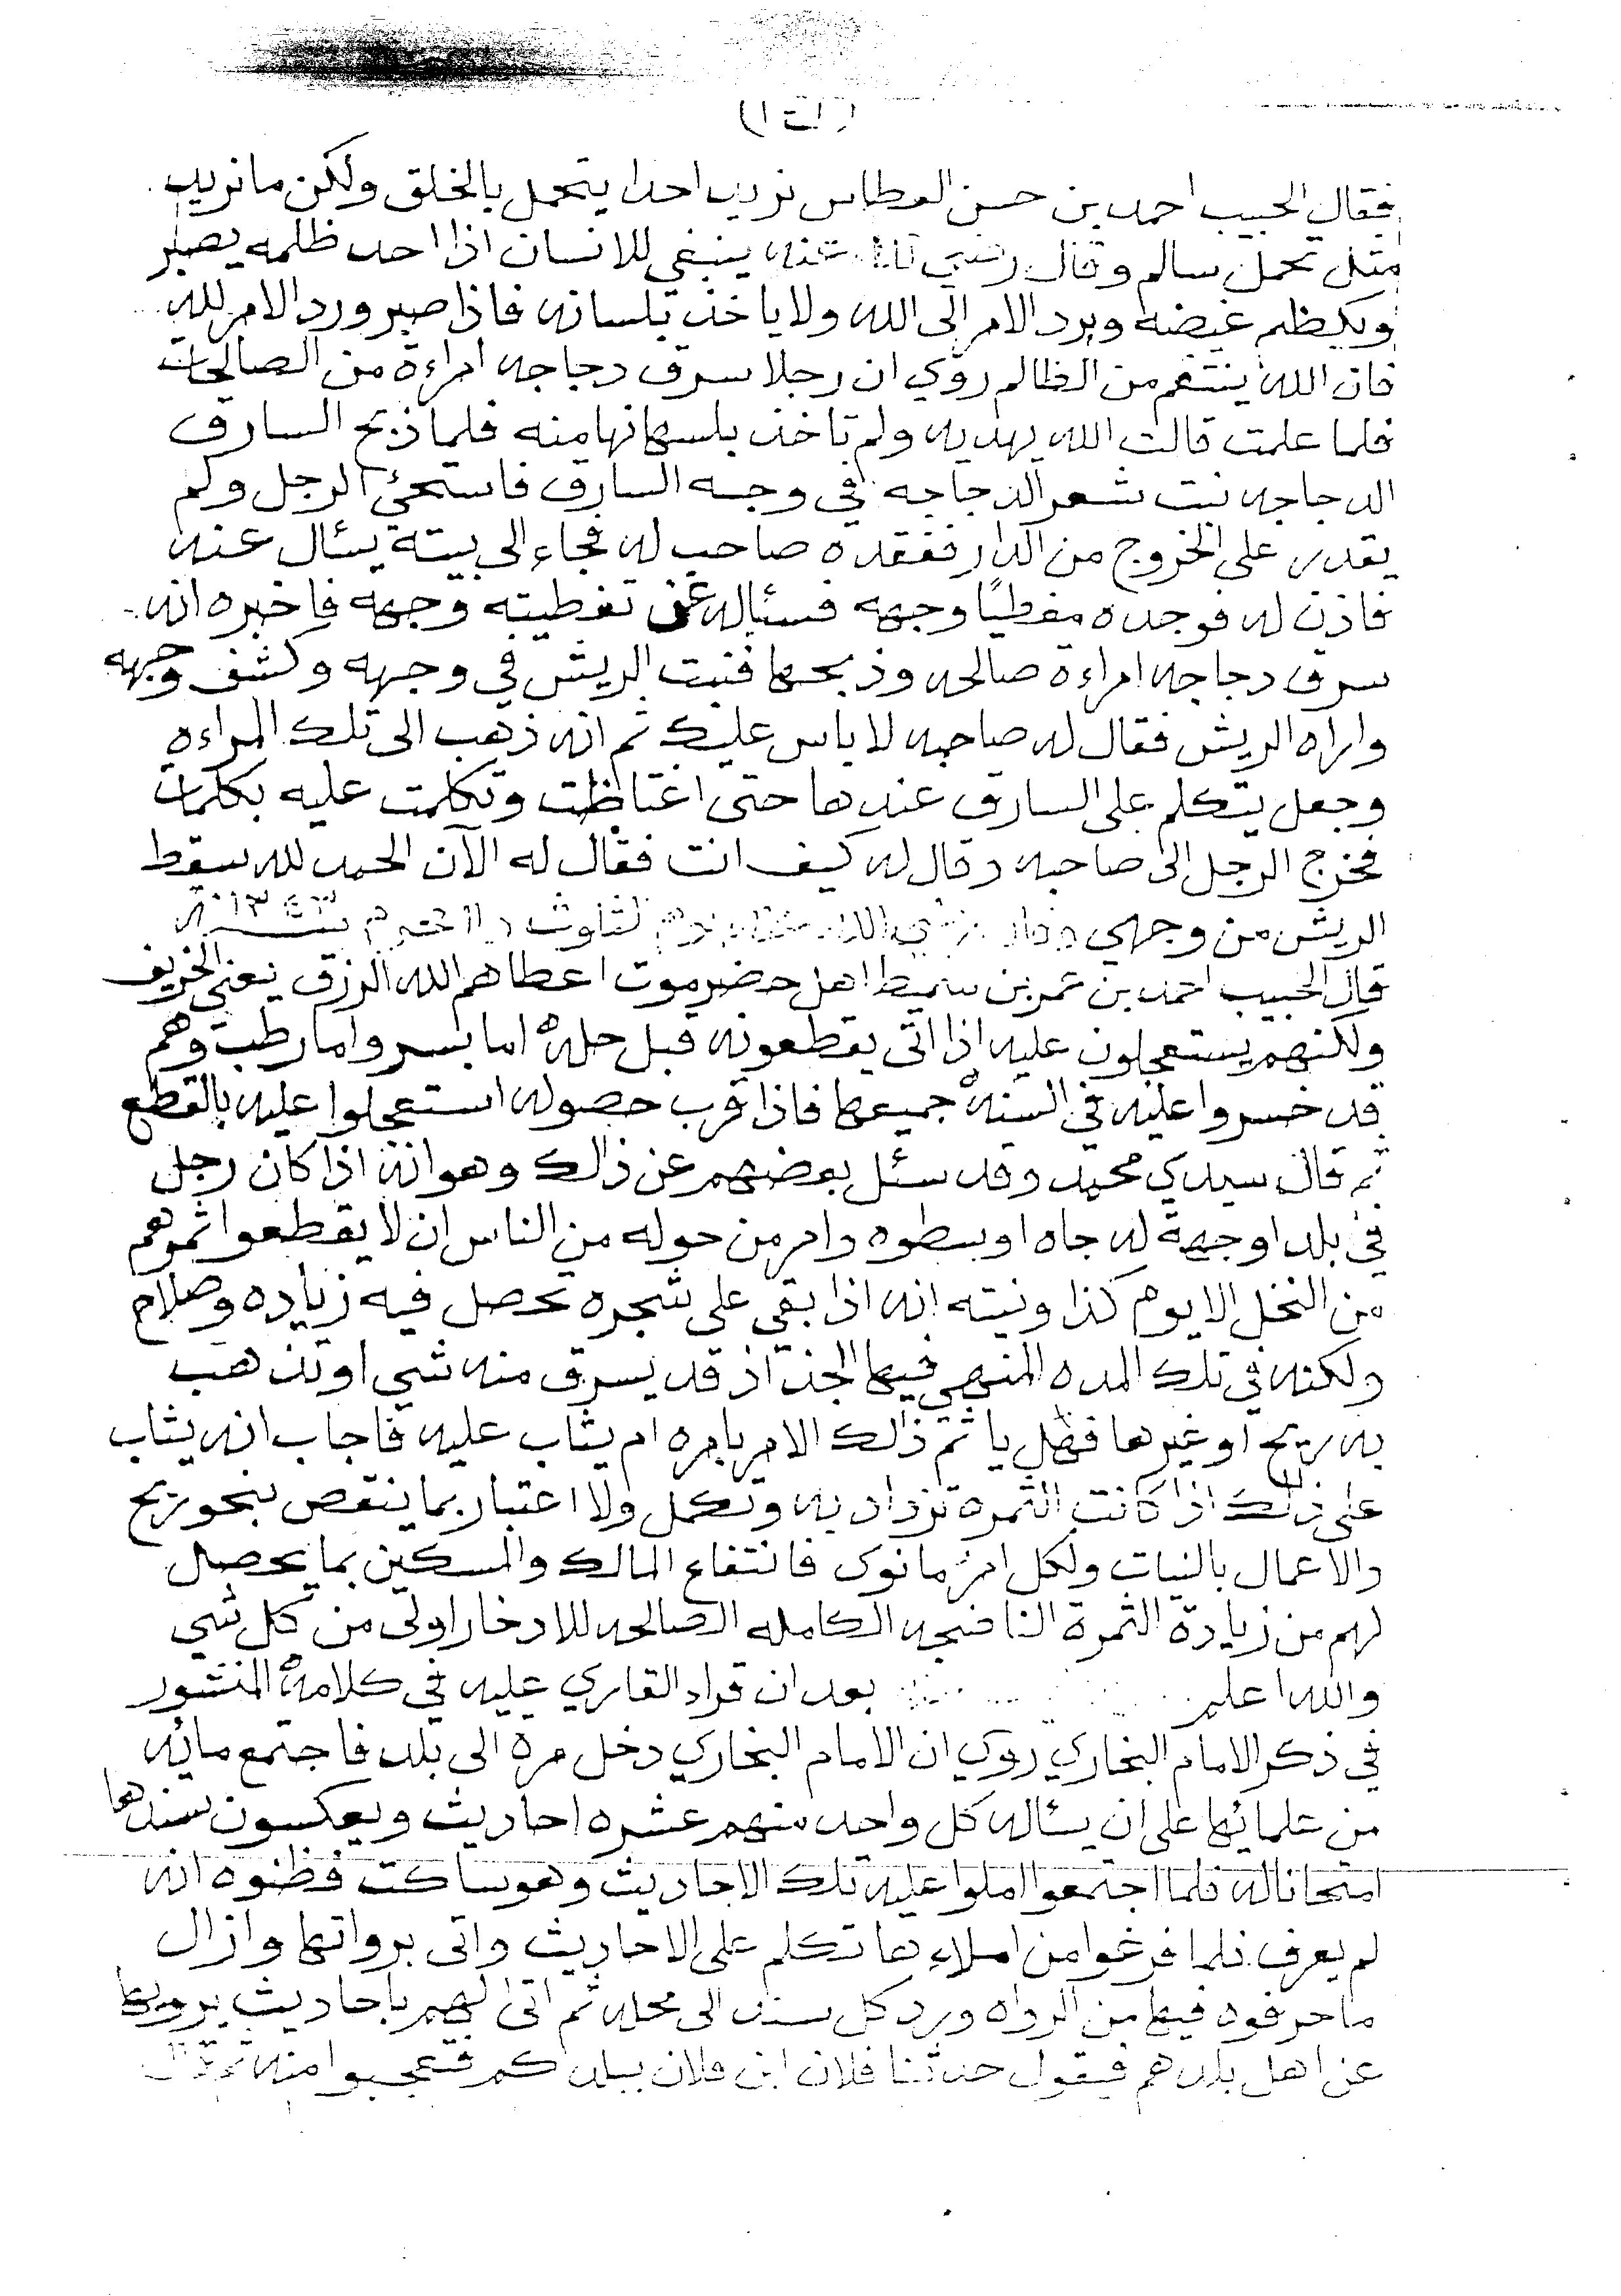 فقال الحبيب احمد بن حسن العطاس نريد احدا يتحمل بالخلق ولكن ما نريد
مثل تحمل سالم وقال رضي الله عنه ينبغي للانسان اذا احد ظلمه يصبر
ويكظم غيضه ويرد الامر الى الله ولا ياخذ بلسانه فاذا صبر ورد الامر لله
فان الله ينتقم من الظالم روي ان رجلا سرق دجاجه امراءة من الصالحات
فلما علمت قالت الله يهديه ولم تاخذ بلسانها منه فلما ذبح السارق
الدجاجه نبت شعر الدجاجه في وجه السارق فاستحى الرجل ولم
يقدر على الخروج من الدار ففقده صاحب له فجاء الى بيته يسئال عنه
فاذن له فوجده مغطيًا وجهه فسئاله عن تغطيته وجهه فاخبره انه
سرق دجاجه امراءة صالحه وذبحها فنبت الريش في وجهه وكشف وجهه
واراه الريش فقال له صاحبه لا باس عليك ثم انه ذهب الى تلك المراءه
وجعل يتكلم على السارق عندها حتى اغتاظت وتكلمت عليه بكلمات
فخرج الرجل الى صاحبه وقال له كيف انت فقال له الآن الحمد لله سقط
الريش من وجهي وقال رضي الله عنه يوم الثلوث محرم سنة ١٣٤٣
قال الحبيب احمد بن عمر بن سميط اهل حضرموت اعطاهم الله الرزق يعني الخريف
ولكنهم يستعجلون عليه اذا اتى يقطعونه قبل حله اما بسر واما رطب وهم
قد خسروا عليه في السنه جميعها فاذا قرب حصوله استعجلوا عليه بالقطع
ثم قال سيدي محمد وقد سئل بعضهم عن ذالك وهو انه اذا كان رجل
في بلد او جهة له جاه او سطوه وامر من حوله من الناس ان لا يقطعوا ثمرهم
من النخل الا يوم كذا ونيته انه اذا بقي على شجره تحصل فيه زياده وصلاح
ولكنه في تلك المده المنهي فيها الجذاذ قد يسرق منه شي او تذهب
به ريح او غيرها فهل ياثم ذالك الامر بامره ام يثاب عليه فاجاب انه يثاب
على ذلك اذا كانت الثمرة تزداد به وتكمل ولا اعتبار بما ينتقص بنحو ريح
والاعمال بالنيات ولكل امرء ما نوى فانتفاع المالك والمسكين بما يحصل
لهم من زيادة الثمرة الناضجه الكامله الصالحه للادخار اولى من كل شي
والله اعلم بعد ان قراء القاري عليه في كلامه المنثور
في ذكر الامام البخاري روي ان الامام البخاري دخل مرة الى بلد فاجتمع مائه
من علمائها على ان يسئاله كل واحد منهم عشره احاديث ويعكسون سندها
امتحانا له فلما اجتمعوا املوا عليه تلك الاحاديث وهو ساكت فظنوه انه
لم يعرف فلما فرغوا من املاءها تكلم على الاحاديث واتى برواتها وازال
ما حرفوه فيها من الرواه ورد كل سند الى محله ثم اتى لهم باحاديث يرويها
عن اهل بلدهم فيقول حدثنا فلان ابن فلان ببلدكم فتعجبوا منه ثم قال